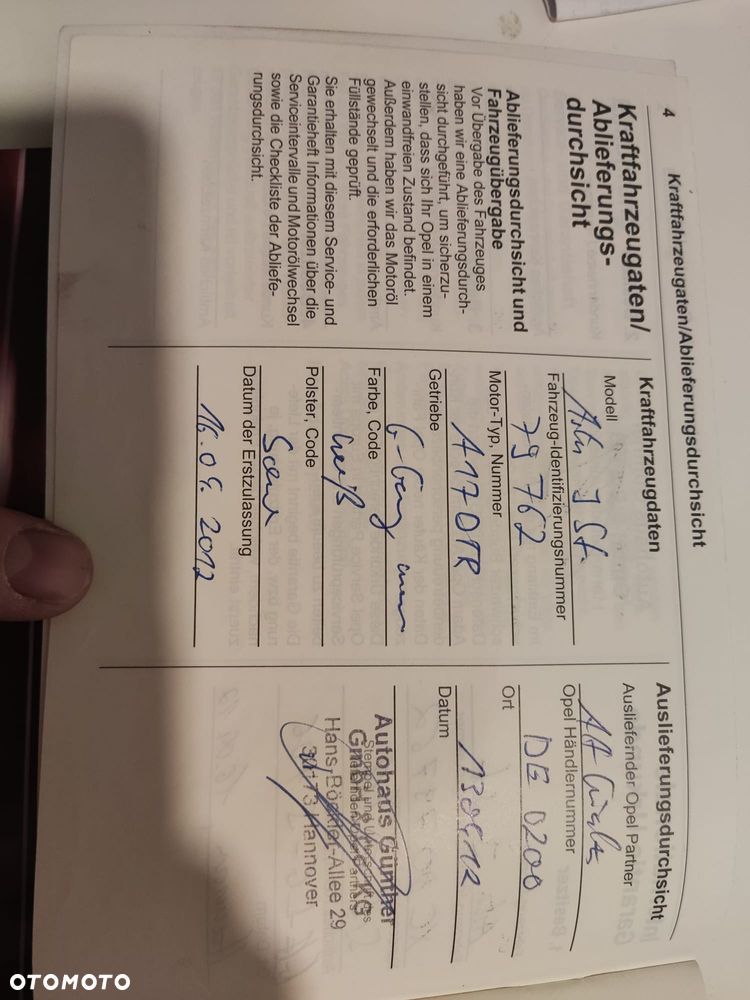 Kraftfahrzeugaten/Ablieferungsdurchsicht
4
Kraftfahrzeugaten/
Ablieferungs-
durchsicht
Ablieferungsdurchsicht und
Fahrzeugübergabe
Vor Übergabe des Fahrzeuges
haben wir eine Ablieferungsdurch-
sicht durchgeführt, um sicherzu-
stellen, dass sich Ihr Opel in einem
einwandfreien Zustand befindet.
Außerdem haben wir das Motoröl
gewechselt und die erforderlichen
Füllstände geprüft.
Sie erhalten mit diesem Service- und
Garantieheft Informationen über die
Serviceintervalle und Motorölwechsel
sowie die Checkliste der Abliefe-
rungsdurchsicht.
Kraftfahrzeugdaten
Modell
J St.
Fahrzeug-Identifizierungsnummer
79 762
Motor-Typ, Nummer
A17DTR
Getriebe
6-Gang
Farbe, Code
weiß
Polster, Code
Datum der Erstzulassung
16.09.2012
Auslieferungsdurchsicht
Ausliefernder Opel Partner
Opel Händlernummer
DE 0200
Ort
Datum
130912
Autohaus Günther
GmbH KG
Hans-Böckler-Allee 29
30173 Hannover
Stempel und Unterschrift des
OTOMOTO